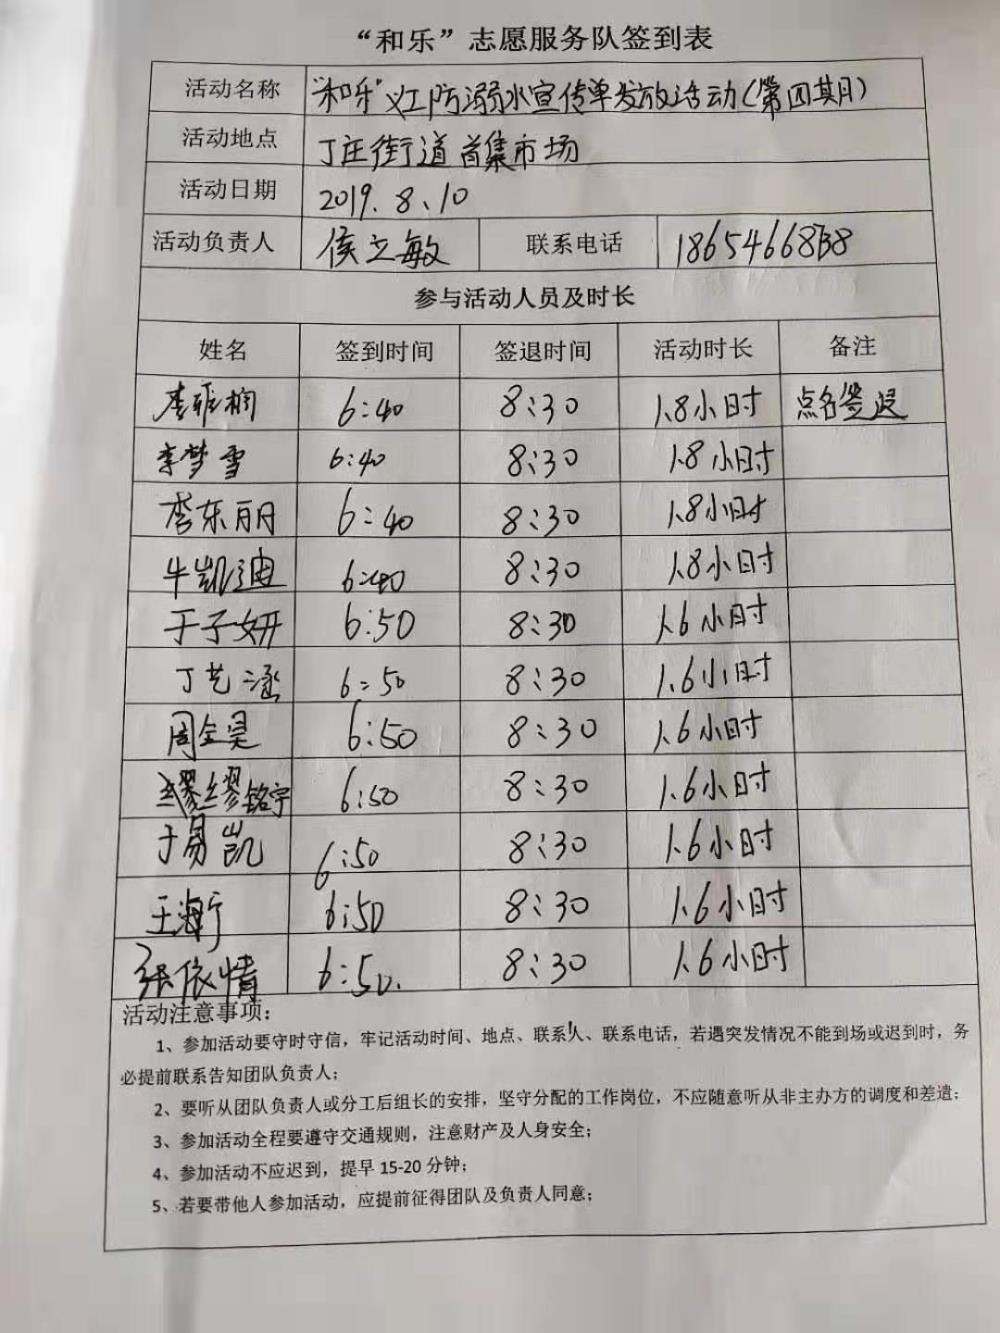 “和乐”志愿服务队签到表
活动名称 “和乐”义工防溺水宣传单发放活动(第四期)
活动地点 丁庄街道首集市场
活动日期 2019.8、10
活动负责人 侯立敏 联系电话
参与活动人员及时长
姓名 签到时间 签退时间 活动时长 备注
李雅桐 6:40 8:30 1.8小时 点名签退
李梦雪 6:40 8:30 1.8小时
李东丽 6:40 8:30 1.8小时
牛凯迪 6:40 8:30 1.8小时
于子妍 6:50 8:30 1.6小时
丁艺涵 6:50 8:30 1.6小时
周金昊 6:50 8:30 1.6小时
缪铭宇 6:50 8:30 1.6小时
于易凯 6:50 8:30 1.6小时
王海宁 6:50 8:30 1.6小时
张依情 6:50. 8:30 1.6小时
活动注意事项：
1、参加活动要守时守信，牢记活动时间、地点、联系人、联系电话，若遇突发情况不能到场或迟到时，务
必提前联系告知团队负责人；
2、要听从团队负责人或分工后组长的安排，坚守分配的工作岗位，不应随意听从非主办方的调度和差遣；
3、参加活动全程要遵守交通规则，注意财产及人身安全；
4、参加活动不应迟到，提早 15-20 分钟；
5、若要带他人参加活动，应提前征得团队及负责人同意；